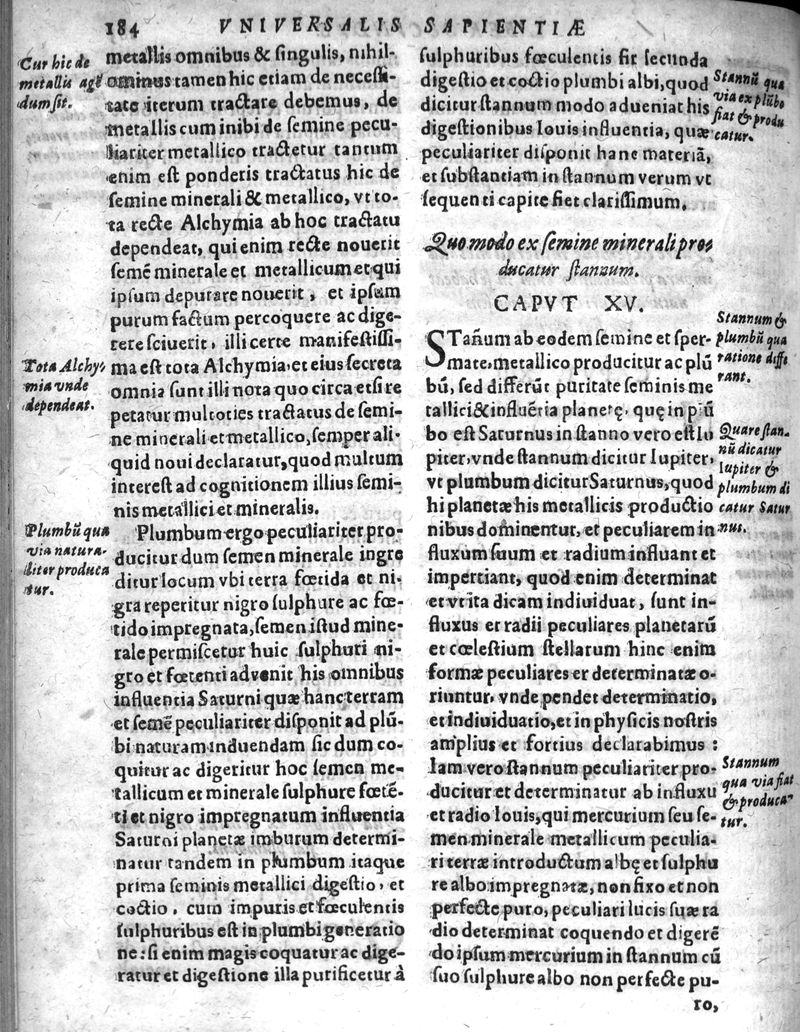 184 VNIVERSALIS SAPIENTIÆ
Cur hic de
metallis agē
dum sit.
metallis omnibus & singulis, nihil-
ominus tamen hic etiam de necessi-
tate iterum tractare debemus, de
metallis cum inibi de semine pecu-
liariter metallico tractetur tantum
enim est ponderis tractatus hic de
semine minerali & metallico, vt to-
ta recte Alchymia ab hoc tractatu
dependeat, qui enim recte nouerit
semē minerale et metallicum et qui
ipsum depurare nouerit, et ipsum
purum factum percoquere ac dige-
rere sciuerit, illi certe manifestissi-
Tota Alchy-
mia vnde
dependeat.
ma est tota Alchymia, et eius secreta
omnia sunt illi nota quo circa etsi re
petatur multoties tractatus de semi-
ne minerali et metallico, semper ali-
quid noui declaratur, quod multum
interest ad cognitionem illius semi-
nis metallici et mineralis.
Plumbū qua
via natura-
liter produca
tur.
Plumbum ergo peculiariter pro-
ducitur dum semen minerale ingre
ditur locum vbi terra fœtida et ni-
gra reperitur nigro sulphure ac fœ-
tido impregnata, semen istud mine-
rale permiscetur huic sulphuri ni-
gro et fœtenti advenit his omnibus
influentia Saturni quæ hanc terram
et semē peculiariter disponit ad plū-
bi naturam induendam sic dum co-
quitur ac digeritur hoc semen me-
tallicum et minerale sulphure fœtē-
ti et nigro impregnatum influentia
Saturni planetæ imburum determi-
natur tandem in plumbum itaque
prima seminis metallici digestio, et
coctio, cum impuris et fœculentis
sulphuribus est in plumbi generatio
ne: si enim magis coquatur ac dige-
ratur et digestione illa purificetur à
sulphuribus fœculentis fit secunda
digestio et coctio plumbi albi, quod
dicitur stannum modo adueniat his
digestionibus Iouis influentia, quæ
peculiariter disponit hanc materiā,
et substantiam in stannum verum vt
sequenti capite fiet clarissimum.
Stannū qua
via ex plūbo
fiat & produ
catur.
Quo modo ex semine minerali pro-
ducatur stannum.
CAPVT XV.
STañum ab eodem semine et sper-
mate, metallico producitur ac plū
bū, sed differūt puritate seminis me
tallici & influētia planetę, quę in plū
bo est Saturnus in stanno vero est Iu
piter, vnde stannum dicitur Iupiter,
vt plumbum dicitur Saturnus, quod
hi planetæ his metallicis productio
nibus dominentur, et peculiarem in
fluxum suum et radium influant et
impertiant, quod enim determinat
et vt ita dicam indiuiduat, sunt in-
fluxus et radii peculiares planetarū
et cœlestium stellarum hinc enim
formæ peculiares et determinatæ o-
riuntur, vnde pendet determinatio,
et indiuiduatio, et in physicis nostris
amplius et fortius declarabimus :
Iam vero stannum peculiariter pro-
ducitur et determinatur ab influxu
et radio Iouis, qui mercurium seu se-
men minerale metallicum peculia-
ri terræ introductum albę et sulphu
re albo impregnatæ, non fixo et non
perfecte puro, peculiari lucis suæ ra
dio determinat coquendo et digerē
do ipsum mercurium in stannum cū
suo sulphure albo non perfecte pu-
ro,
Stannum &
plumbū qua
ratione diffe
rant.
Quare stan-
nū dicatur
Iupiter &
plumbum di
catur Satur
nus.
Stannum
qua via fiat
& produca-
tur.